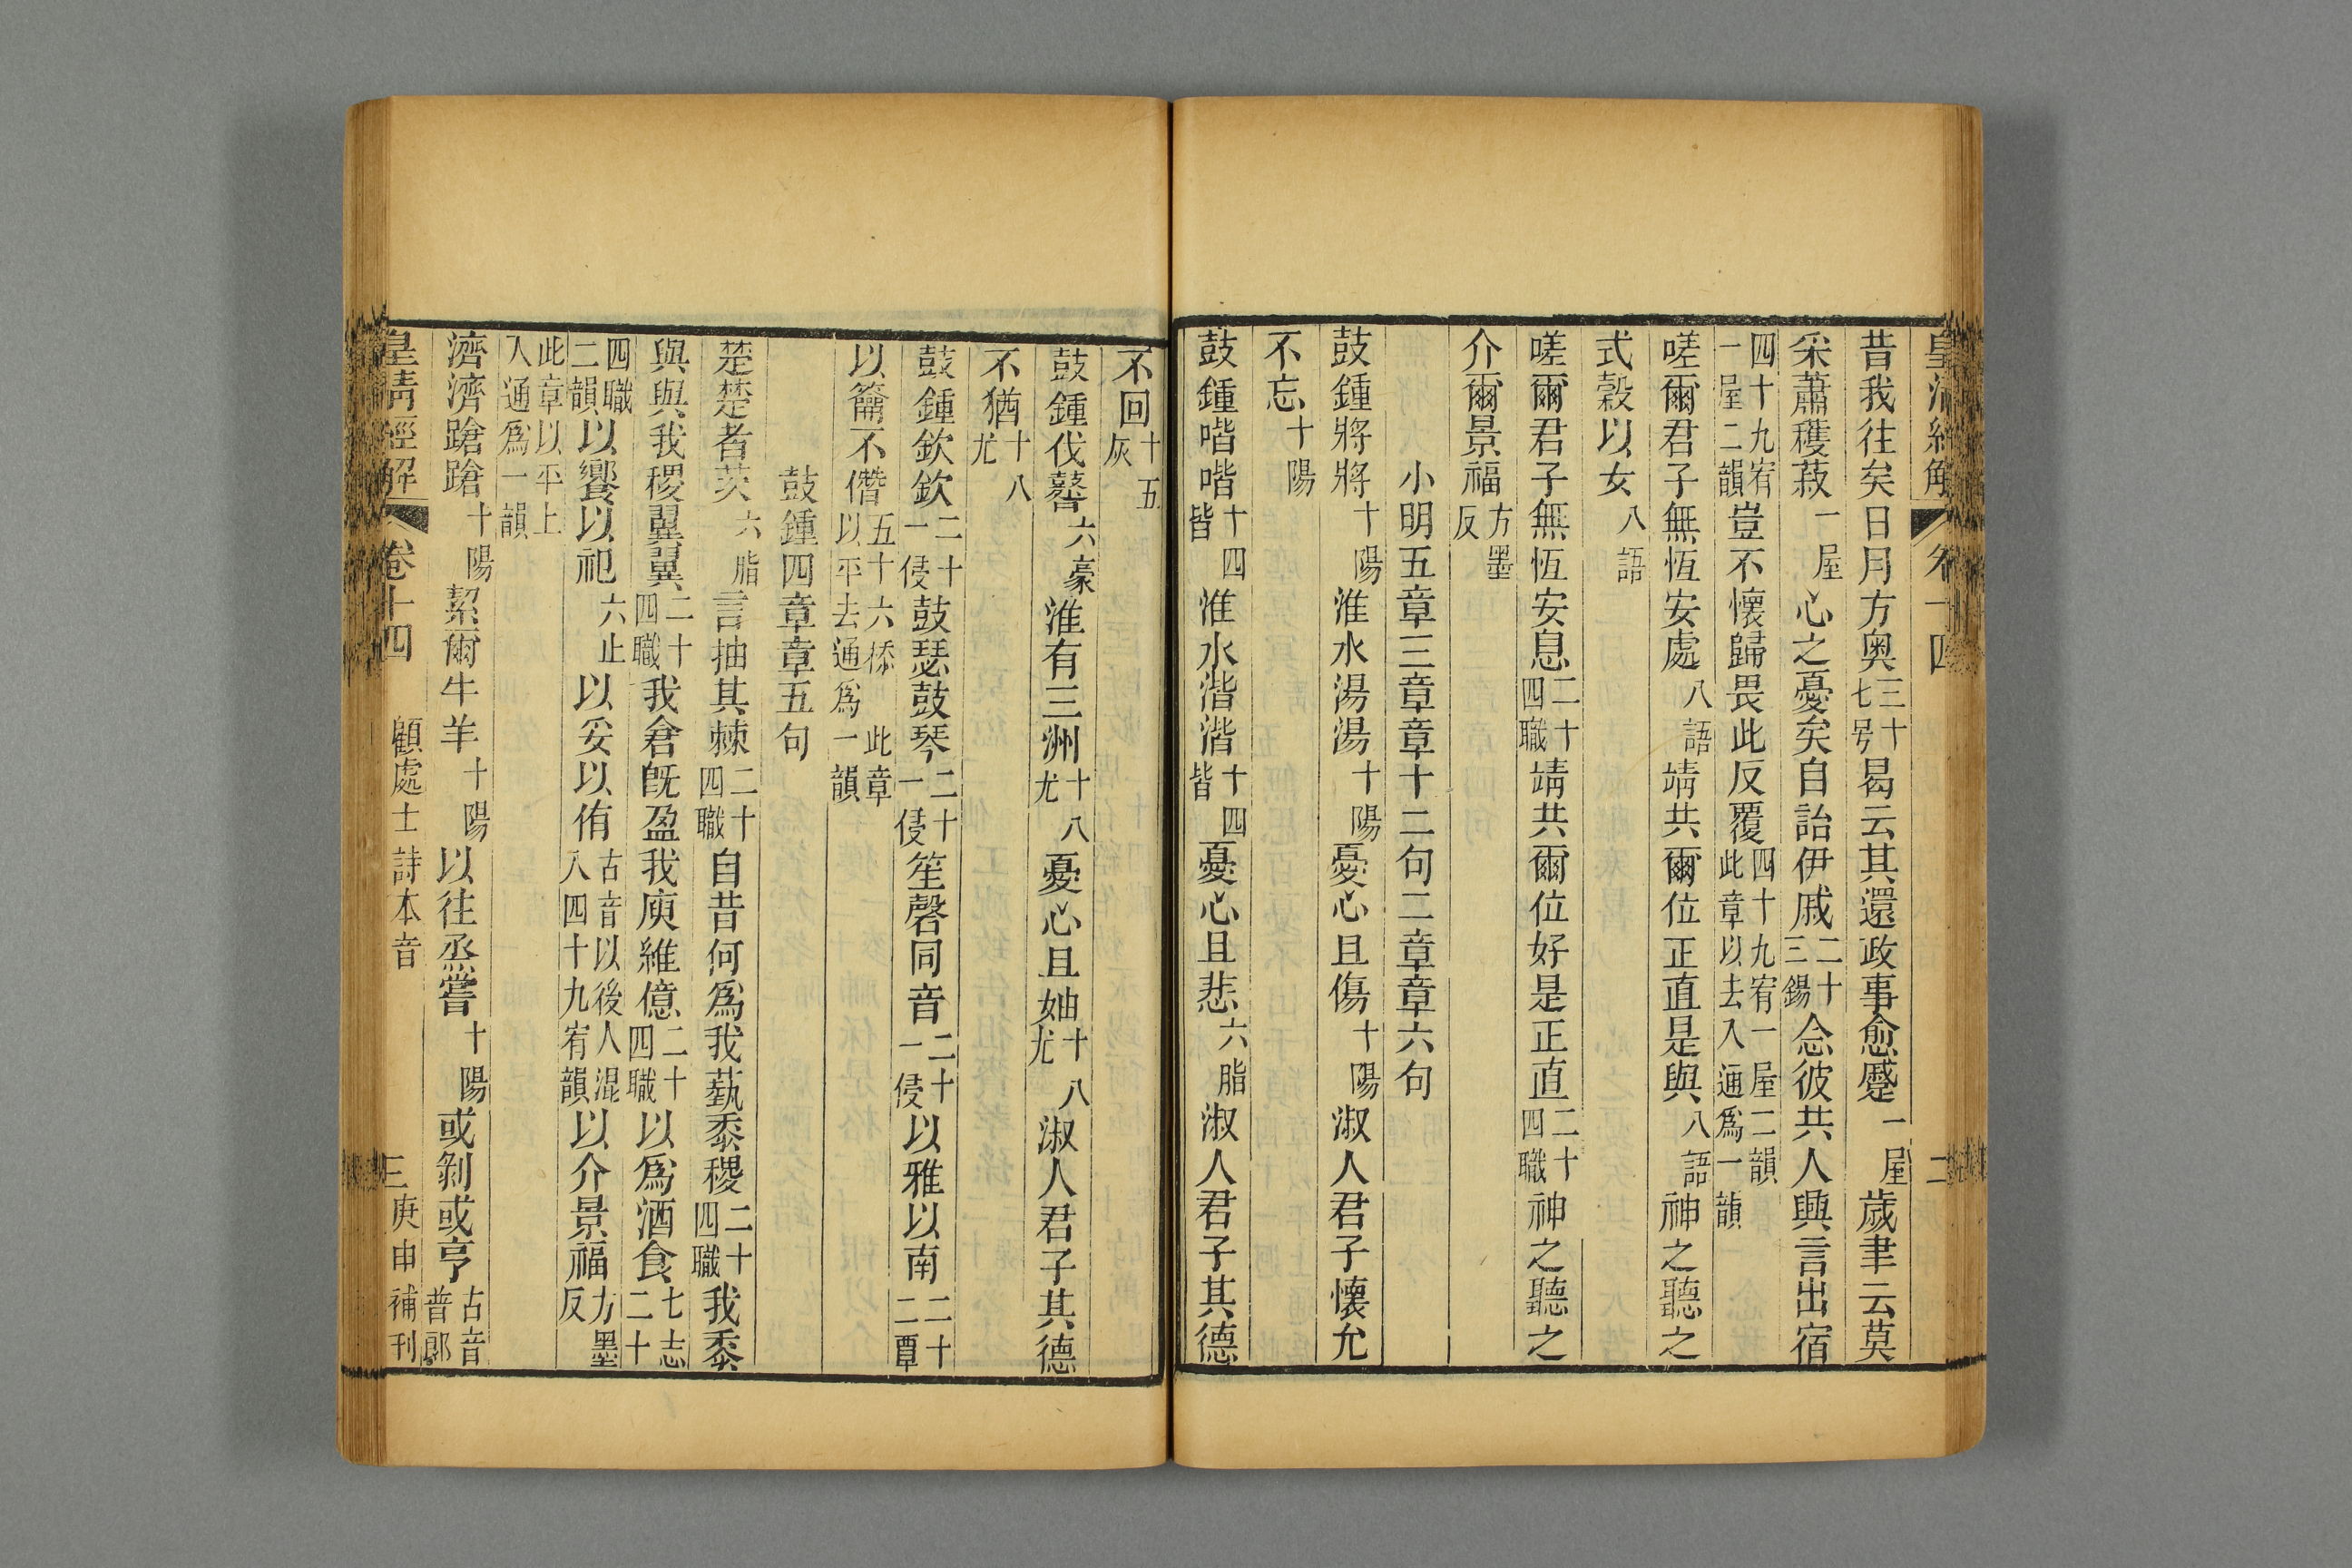 皇清經解 卷十四 二
昔我往矣日月方奧三十七号曷云其還政事愈蹙一屋歲聿云莫
采蕭穫菽一屋心之憂矣自詒伊戚二十三錫念彼共人興言出宿
四十九宥一屋二韻豈不懷歸畏此反覆四十九宥一屋二韻此章以去入通爲一韻
嗟爾君子無恆安處八語靖共爾位正直是與八語神之聽之
式穀以女八語
嗟爾君子無恆安息二十四職靖共爾位好是正直二十四職神之聽之
介爾景福方墨反
小明五章三章章十二句二章章六句
鼓鍾將將十陽淮水湯湯十陽憂心且傷十陽淑人君子懷允
不忘十陽
鼓鍾喈喈十四皆淮水湝湝十四皆憂心且悲六脂淑人君子其德
不回十五灰
鼓鍾伐鼛六豪淮有三洲十八尤憂心且妯十八尤淑人君子其德
不猶十八尤
鼓鍾欽欽二十一侵鼓瑟鼓琴二十一侵笙磬同音二十一侵以雅以南二十二覃
以籥不僭五十六㮇此章以平去通爲一韻
鼓鍾四章章五句
楚楚者茨六脂言抽其棘二十四職自昔何爲我蓺黍稷二十四職我黍
與與我稷翼翼二十四職我倉旣盈我庾維億二十四職以爲酒食七志二十
四職二韻以饗以祀六止以妥以侑古音以後人混入四十九宥韻以介景福方墨反
此章以平上入通爲一韻
濟濟蹌蹌十陽絜爾牛羊十陽以往烝嘗十陽或剝或亨古音普郎
皇清經解 卷十四 顧處士詩本音 三 庚申補刊